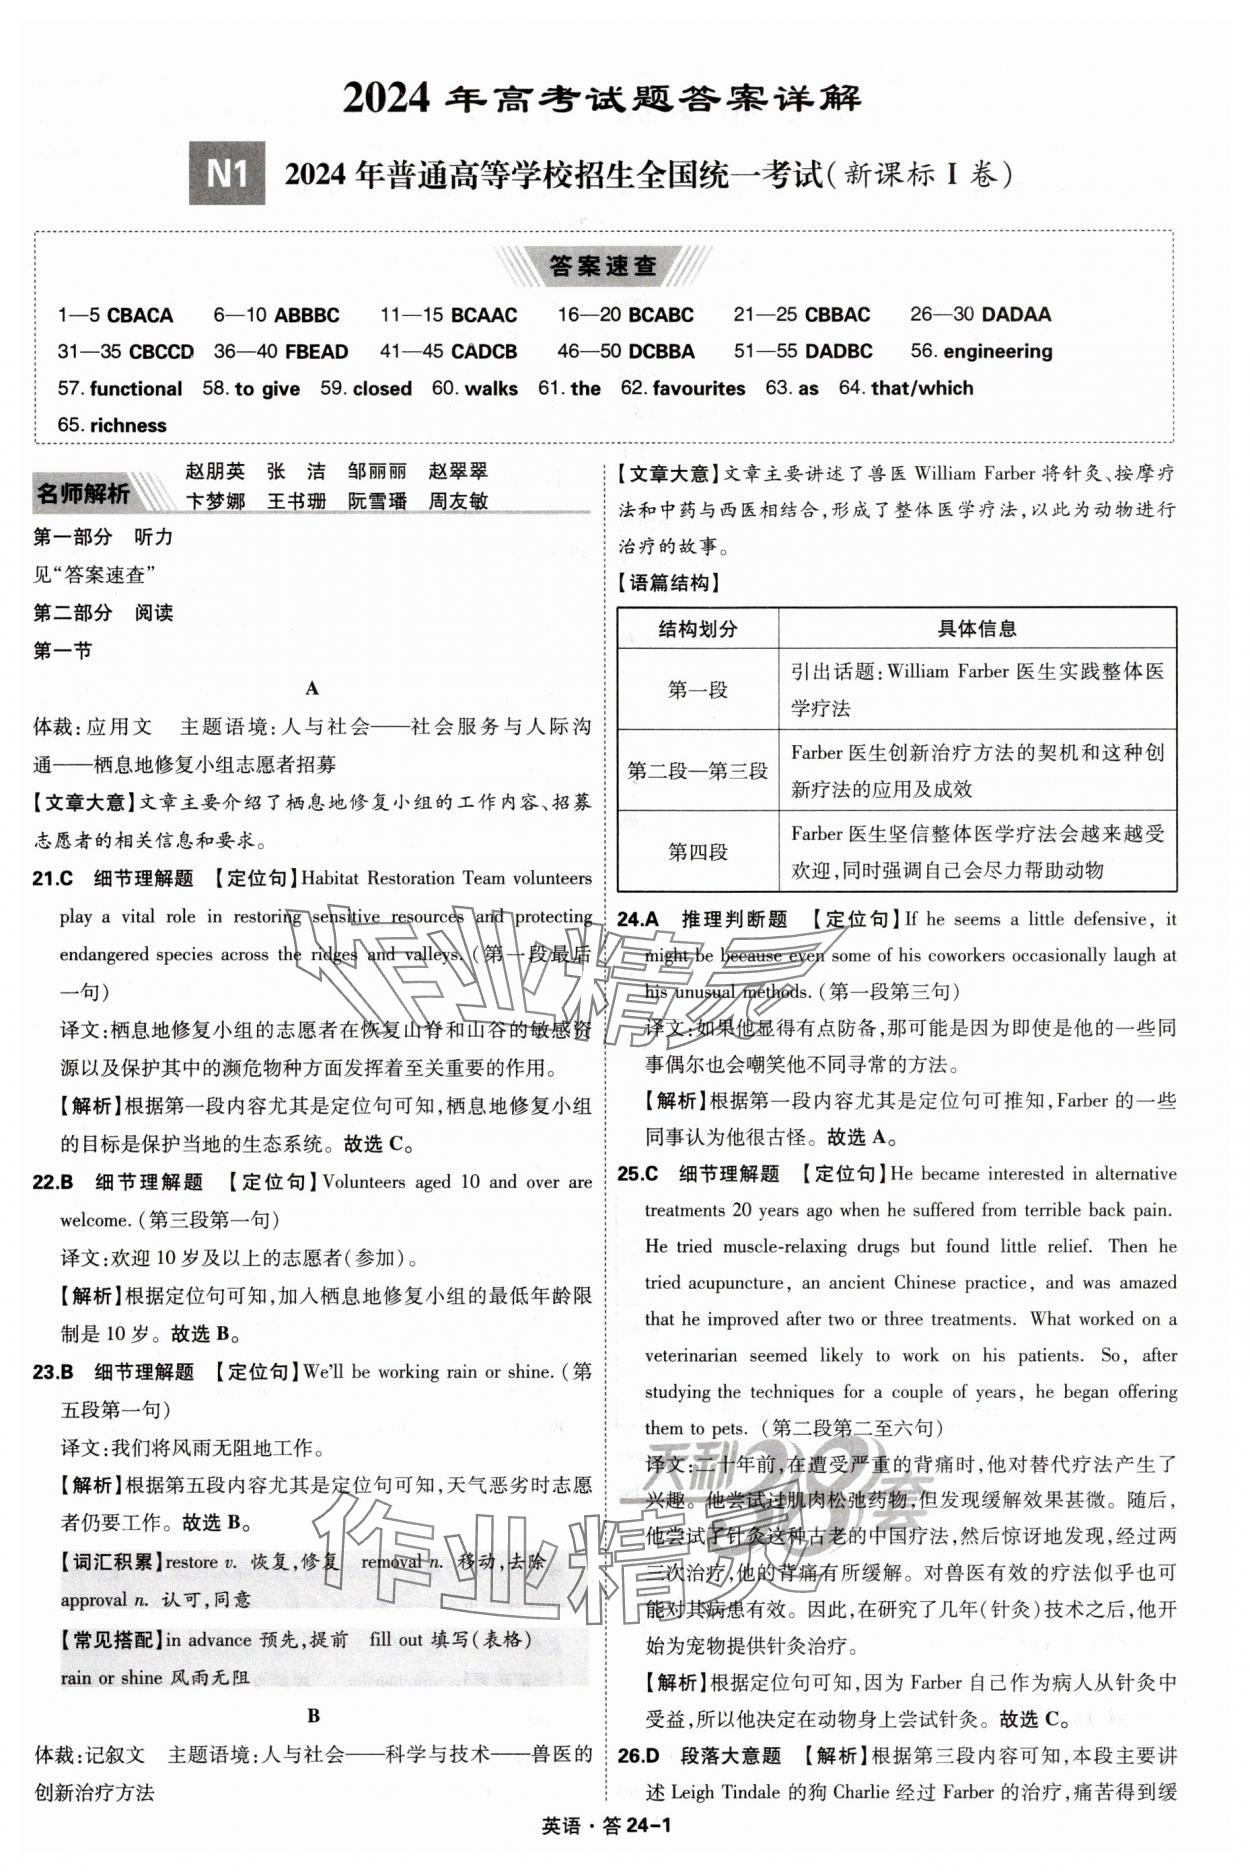 2024年高考试题答案详解
N1 2024年普通高等学校招生全国统一考试(新课标Ⅰ卷)
答案速查
1—5 CBACA 6—10 ABBBC 11—15 BCAAC 16—20 BCABC 21—25 CBBAC 26—30 DADAA
31—35 CBCCD 36—40 FBEAD 41—45 CADCB 46—50 DCBBA 51—55 DADBC 56. engineering
57. functional 58. to give 59. closed 60. walks 61. the 62. favourites 63. as 64. that/which
65. richness
名师解析
赵朋英 张 洁 邹丽丽 赵翠翠
卞梦娜 王书珊 阮雪璠 周友敏
第一部分 听力
见“答案速查”
第二部分 阅读
第一节
A
体裁:应用文 主题语境:人与社会——社会服务与人际沟
通——栖息地修复小组志愿者招募
【文章大意】文章主要介绍了栖息地修复小组的工作内容、招募
志愿者的相关信息和要求。
21.C 细节理解题 【定位句】Habitat Restoration Team volunteers
play a vital role in restoring sensitive resources and protecting
endangered species across the ridges and valleys.(第一段最后
一句)
译文:栖息地修复小组的志愿者在恢复山脊和山谷的敏感资
源以及保护其中的濒危物种方面发挥着至关重要的作用。
【解析】根据第一段内容尤其是定位句可知,栖息地修复小组
的目标是保护当地的生态系统。故选C。
22.B 细节理解题 【定位句】Volunteers aged 10 and over are
welcome.(第三段第一句)
译文:欢迎10岁及以上的志愿者(参加)。
【解析】根据定位句可知,加入栖息地修复小组的最低年龄限
制是10岁。故选B。
23.B 细节理解题 【定位句】We'll be working rain or shine.(第
五段第一句)
译文:我们将风雨无阻地工作。
【解析】根据第五段内容尤其是定位句可知,天气恶劣时志愿
者仍要工作。故选B。
【词汇积累】restore v. 恢复,修复 removal n. 移动,去除
approval n. 认可,同意
【常见搭配】in advance 预先,提前 fill out 填写(表格)
rain or shine 风雨无阻
B
体裁:记叙文 主题语境:人与社会——科学与技术——兽医的
创新治疗方法
【文章大意】文章主要讲述了兽医William Farber将针灸、按摩疗
法和中药与西医相结合,形成了整体医学疗法,以此为动物进行
治疗的故事。
【语篇结构】
结构划分 具体信息
第一段 引出话题:William Farber医生实践整体医
学疗法
第二段—第三段 Farber医生创新治疗方法的契机和这种创
新疗法的应用及成效
第四段 Farber医生坚信整体医学疗法会越来越受
欢迎,同时强调自己会尽力帮助动物
24.A 推理判断题 【定位句】If he seems a little defensive, it
might be because even some of his coworkers occasionally laugh at
his unusual methods.(第一段第三句)
译文:如果他显得有点防备,那可能是因为即使是他的一些同
事偶尔也会嘲笑他不同寻常的方法。
【解析】根据第一段内容尤其是定位句可推知,Farber的一些
同事认为他很古怪。故选A。
25.C 细节理解题 【定位句】He became interested in alternative
treatments 20 years ago when he suffered from terrible back pain.
He tried muscle-relaxing drugs but found little relief. Then he
tried acupuncture, an ancient Chinese practice, and was amazed
that he improved after two or three treatments. What worked on a
veterinarian seemed likely to work on his patients. So, after
studying the techniques for a couple of years, he began offering
them to pets.(第二段第二至六句)
译文:二十年前,在遭受严重的背痛时,他对替代疗法产生了
兴趣。他尝试过肌肉松弛药物,但发现缓解效果甚微。随后,
他尝试了针灸这种古老的中国疗法,然后惊讶地发现,经过两
三次治疗,他的背痛有所缓解。对兽医有效的疗法似乎也可
能对其病患有效。因此,在研究了几年(针灸)技术之后,他开
始为宠物提供针灸治疗。
【解析】根据定位句可知,因为Farber自己作为病人从针灸中
受益,所以他决定在动物身上尝试针灸。故选C。
26.D 段落大意题 【解析】根据第三段内容可知,本段主要讲
述Leigh Tindale的狗Charlie经过Farber的治疗,痛苦得到缓
英语·答24-1
作业精灵
作业精灵
天利38套